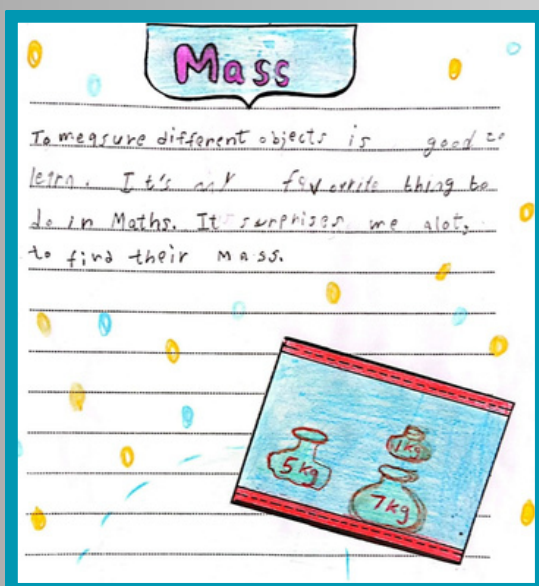 Mass
To measure different objects is good to
letrn. It's my favorite thing to
do in Maths. It surprises me alot,
to find their mass.
5kg
1kg
7kg